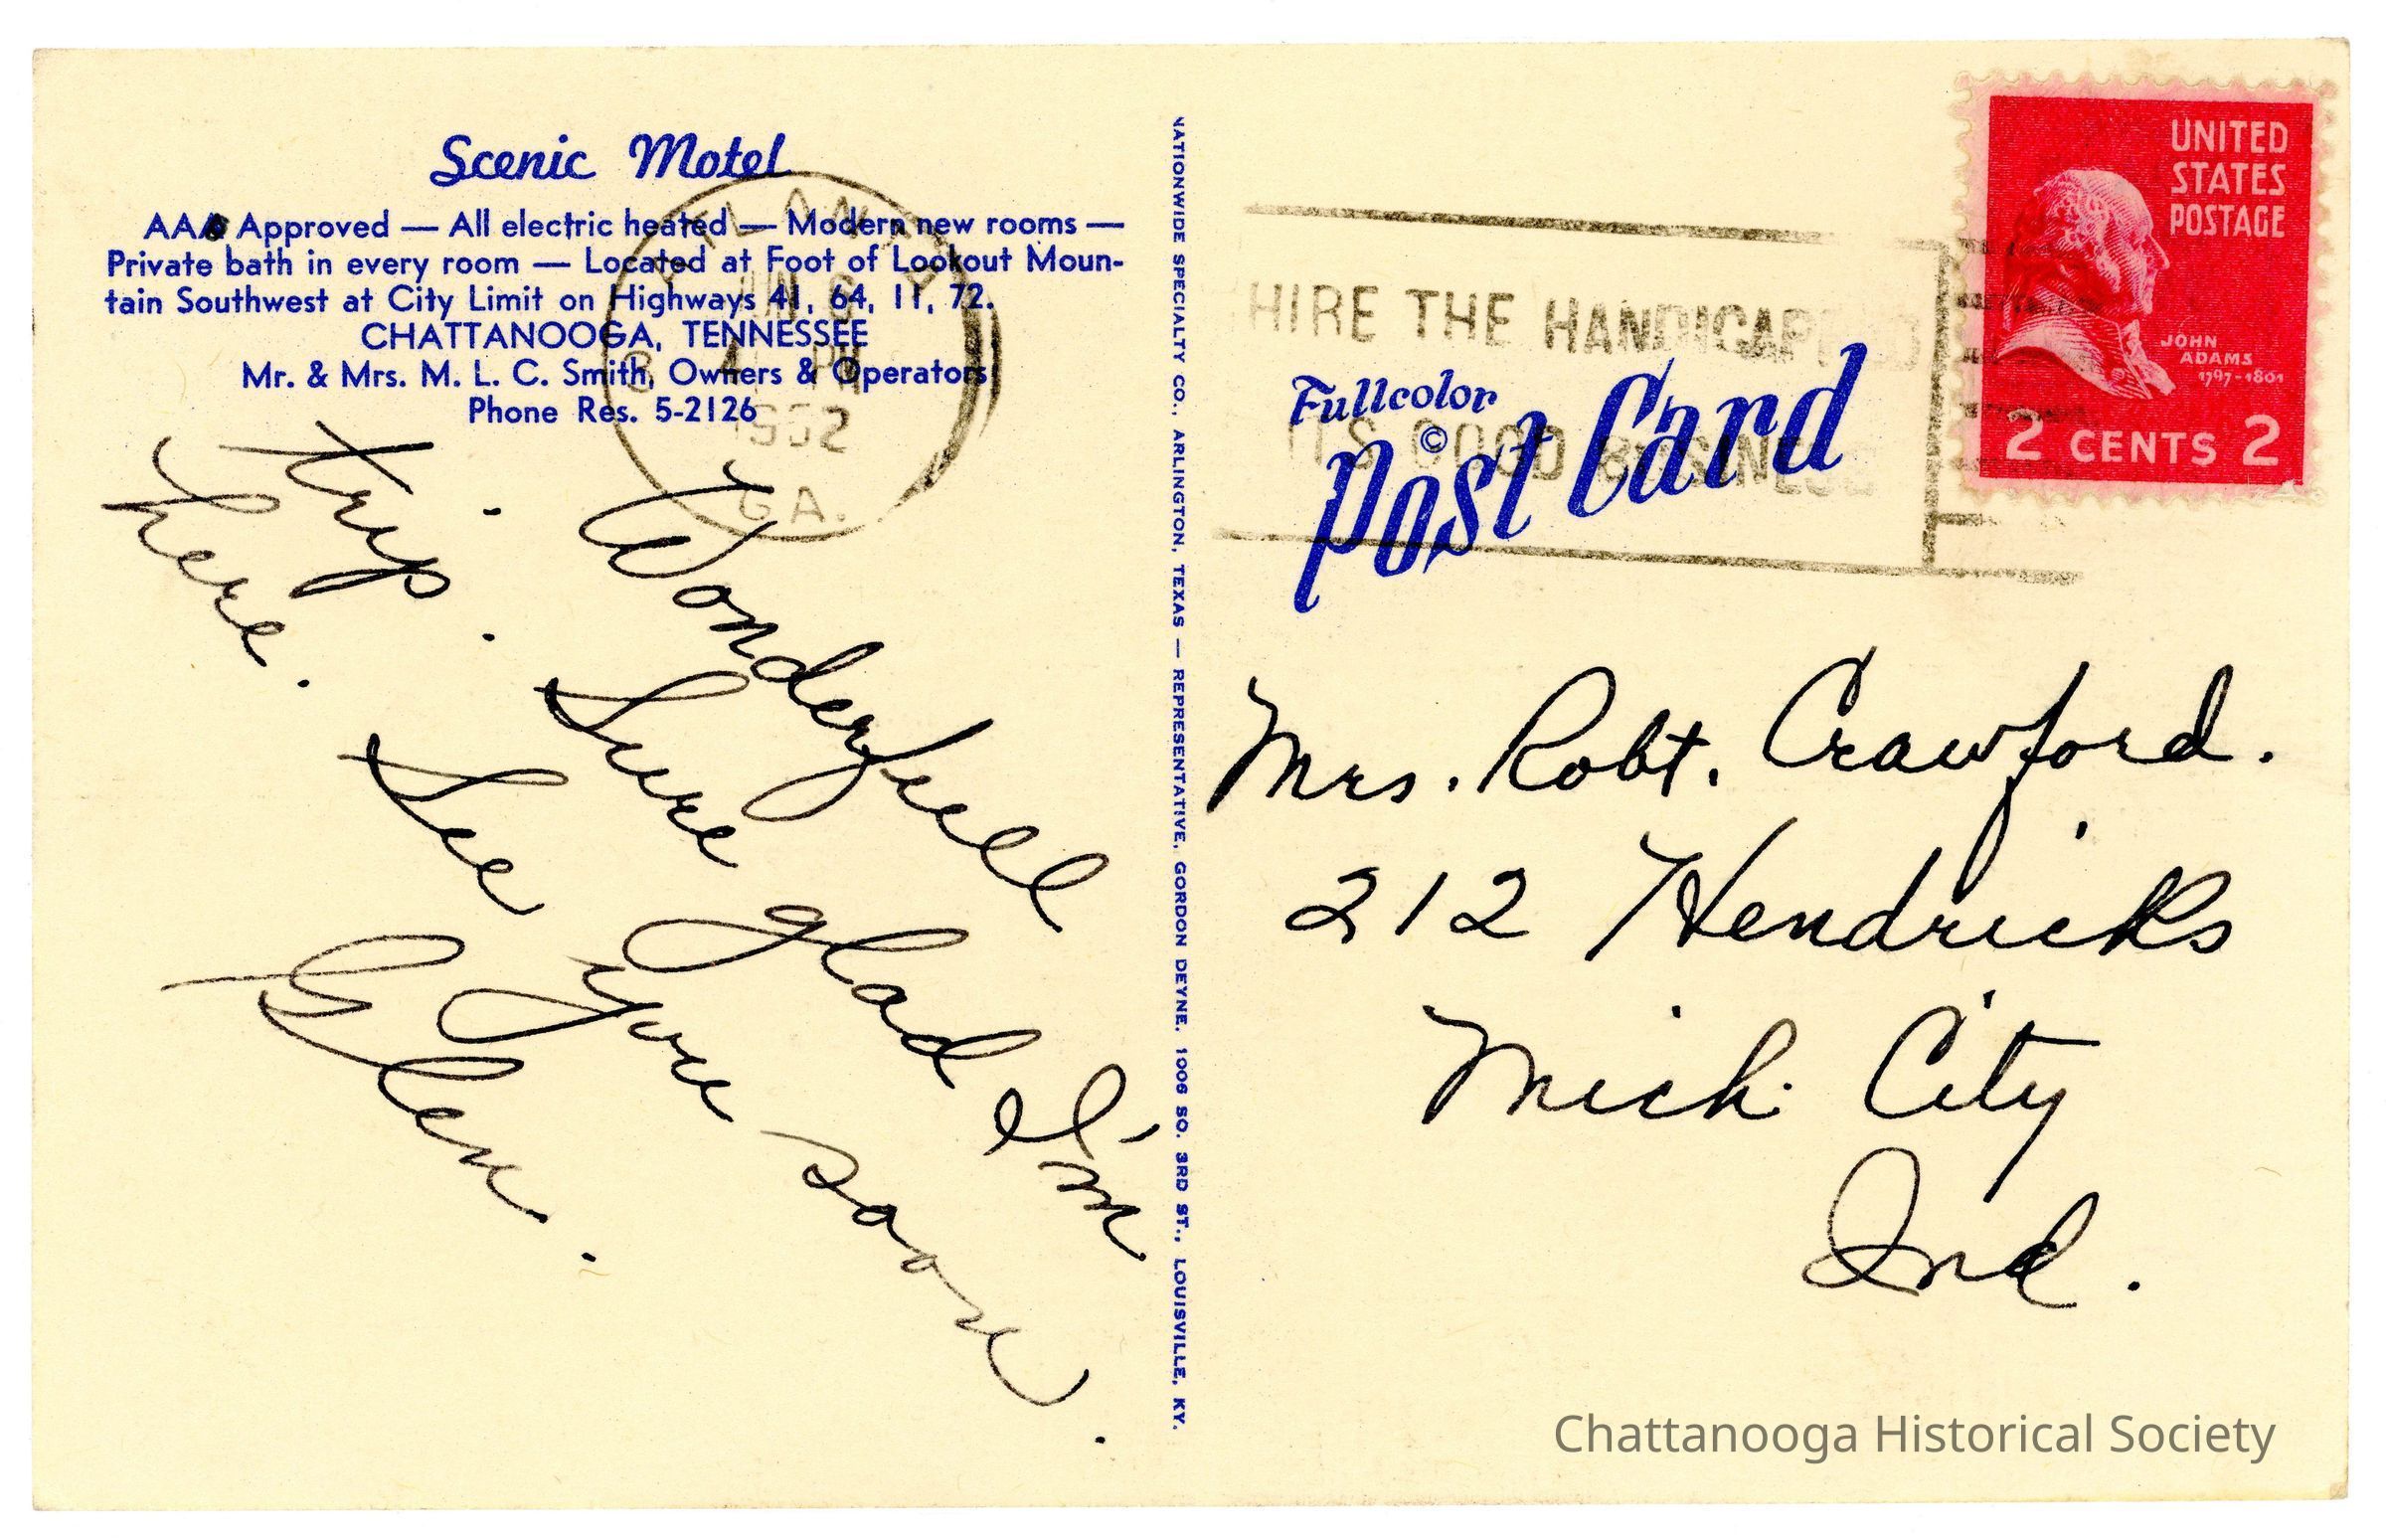 Scenic Motel
AAA Approved — All electric heated — Modern new rooms —
Private bath in every room — Located at Foot of Lookout Moun-
tain Southwest at City Limit on Highways 41, 64, 11, 72.
CHATTANOOGA, TENNESSEE
Mr. & Mrs. M. L. C. Smith, Owners & Operators
Phone Res. 5-2126
ATLANTA
PM
1952
GA.
Wonderfull
trip. Sure glad I'm
here. See you soon.
Glen.
NATIONWIDE SPECIALTY CO., ARLINGTON, TEXAS — REPRESENTATIVE, GORDON DEYNE. 1006 SO. 3RD ST., LOUISVILLE, KY.
HIRE THE HANDICAPPED
IT'S GOOD BUSINESS
Fullcolor
©
Post Card
UNITED
STATES
POSTAGE
JOHN
ADAMS
1797-1801
2 CENTS 2
Mrs. Robt. Crawford.
212 Hendricks
Mich. City
Ind.
Chattanooga Historical Society